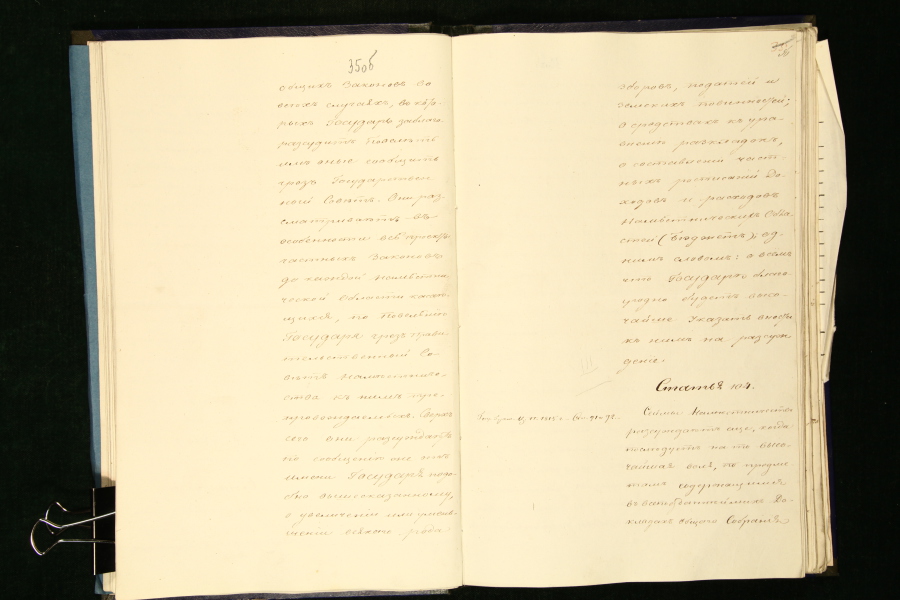 35об
общихъ Законовъ во
всехъ случаяхъ, въ кото-
рыхъ Государь заблаго-
разсудитъ повелѣть
имъ оные сообщить
чрезъ Государствен-
ный Совѣтъ. Они раз-
сматриваютъ въ
особенности всѣ проекты
частныхъ Законовъ
до каждой Намѣстни-
ческой Области касаю-
щихся, по Повелѣнію
Государя чрезъ Прави-
тельственный Со-
вѣтъ Намѣстниче-
ства къ нимъ пре-
провождаемыхъ. Сверхъ
сего они разсуждаютъ
по сообщенію имъ
имени Государя подо-
бно вышесказанному,
о увеличеніи или умень-
шеніи всякаго рода
36
сборовъ, податей и
земскихъ повинностей;
о средствахъ къ урав-
ненію раскладокъ,
о составленіи част-
ныхъ росписаній До-
ходовъ и расходовъ
Намѣстническихъ Обла-
стей (бюджетъ); од-
нимъ словомъ: о всемъ
что Государю благо-
угодно будетъ высо-
чайше Указать внести
къ нимъ на разсуж-
деніе.
Статья 104.
Сеймы Намѣстничества
разсуждаютъ еще, когда
послѣдуетъ на то высо-
чайшая воля, по предме-
тамъ содержащимся
въ всеподданнѣйшихъ До-
кладахъ общаго Собранія